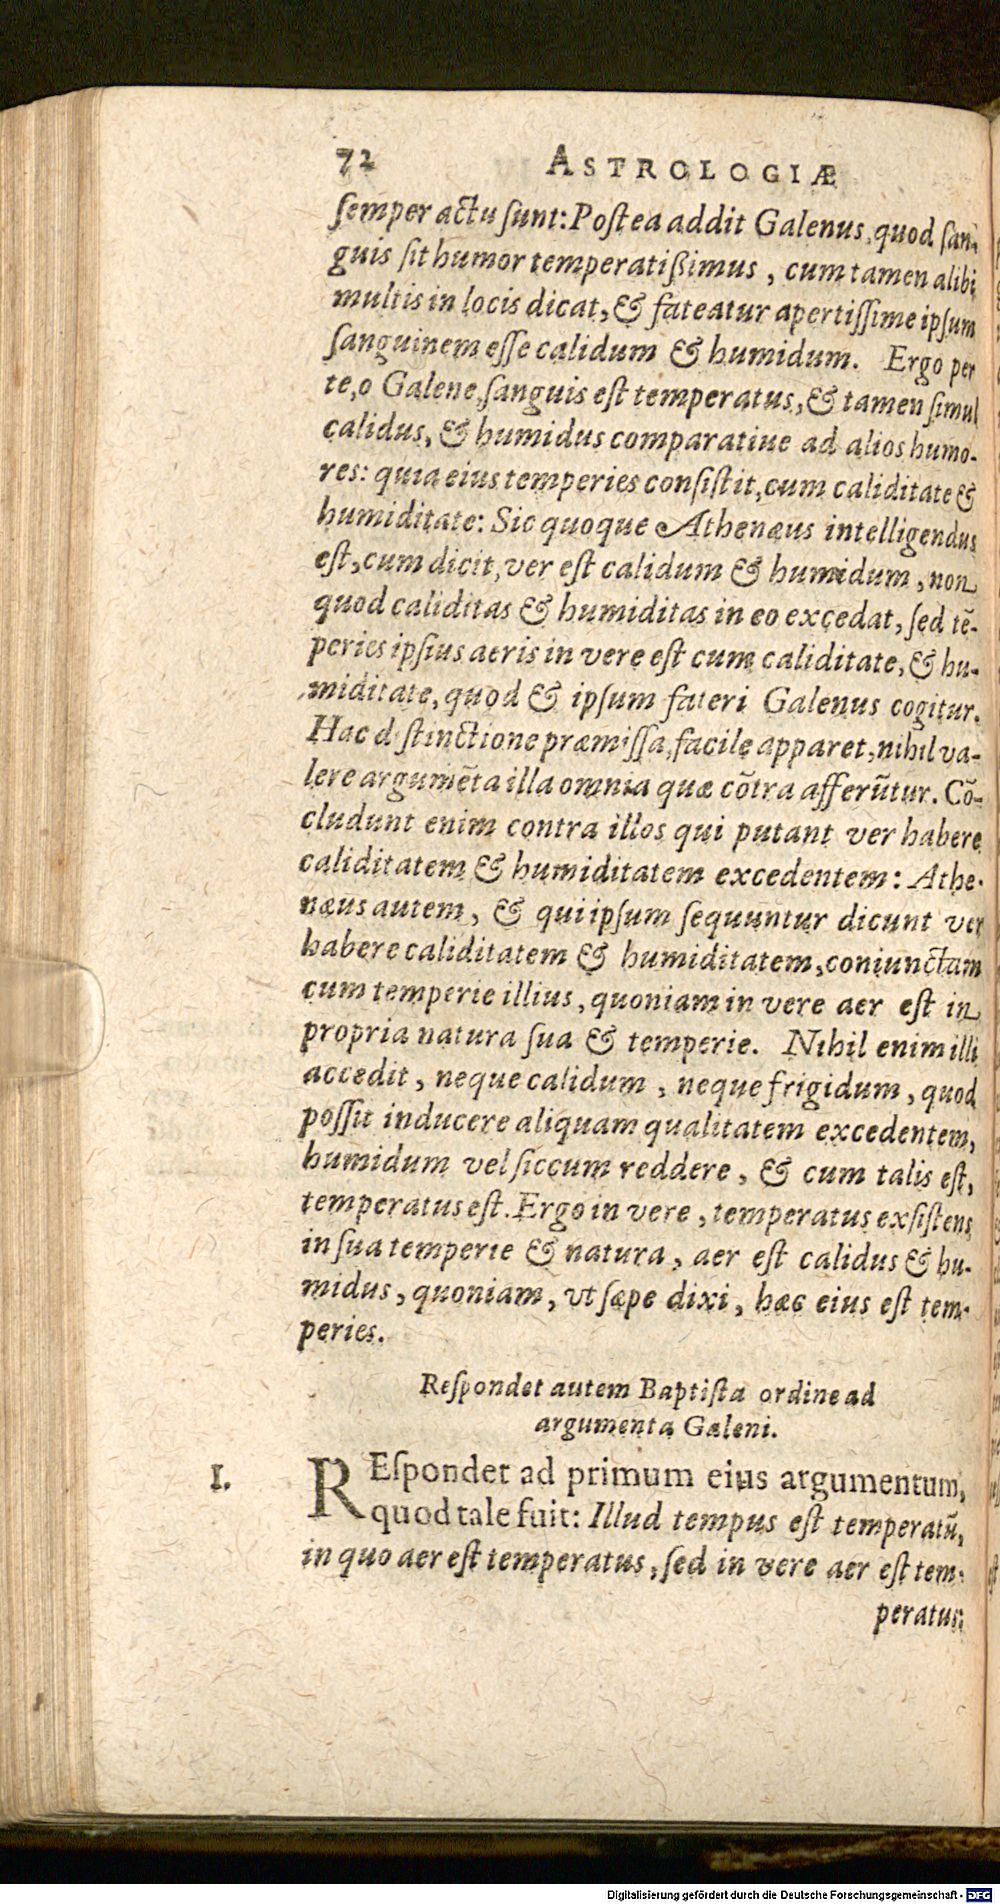 72 ASTROLOGIÆ
ſemper actu ſunt: Poſtea addit Galenus, quod ſan-
guis ſit humor temperatiſsimus, cum tamen alibi
multis in locis dicat, & fateatur apertiſſime ipſum
ſanguinem eſſe calidum & humidum. Ergo per
te, o Galene, ſanguis eſt temperatus, & tamen ſimul
calidus, & humidus comparatiue ad alios humo-
res: quia eius temperies conſiſtit, cum caliditate &
humiditate: Sic quoque Athenæus intelligendus
eſt, cum dicit, ver eſt calidum & humidum, non
quod caliditas & humiditas in eo excedat, ſed tē-
peries ipſius aeris in vere eſt cum caliditate, & hu-
miditate, quod & ipſum fateri Galenus cogitur.
Hac diſtinctione præmiſſa, facile apparet, nihil va-
lere argumēta illa omnia quæ cōtra afferūtur. Cō-
cludunt enim contra illos qui putant ver habere
caliditatem & humiditatem excedentem: Athe-
næus autem, & qui ipſum ſequuntur dicunt ver
habere caliditatem & humiditatem, coniunctam
cum temperie illius, quoniam in vere aer eſt in
propria natura ſua & temperie. Nihil enim illi
accedit, neque calidum, neque frigidum, quod
poſſit inducere aliquam qualitatem excedentem,
humidum vel ſiccum reddere, & cum talis eſt,
temperatus eſt. Ergo in vere, temperatus exſiſtens
in ſua temperie & natura, aer eſt calidus & hu-
midus, quoniam, vt ſæpe dixi, hæc eius eſt tem-
peries.
Reſpondet autem Baptiſta ordine ad
argumenta Galeni.
I. REſpondet ad primum eius argumentum,
quod tale fuit: Illud tempus eſt temperatū,
in quo aer eſt temperatus, ſed in vere aer eſt tem-
peratus:
Digitalisierung gefördert durch die Deutsche Forschungsgemeinschaft - DFG